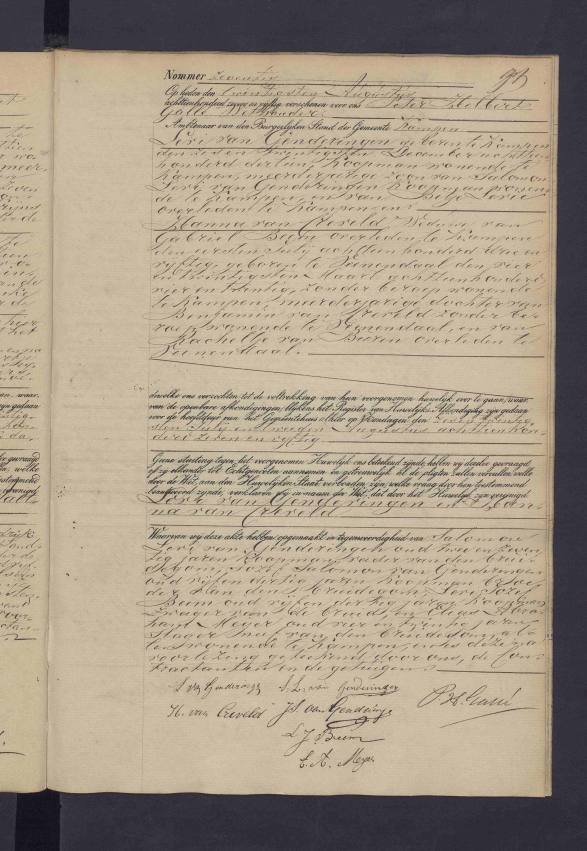 Nommer zeventig
Op heden den twintigsten Augustus
achttienhonderd zeven en vijftig verschenen voor ons Peter Helbert
Gallé Wethouder
Ambtenaar van den Burgelijken Stand der Gemeente Kampen
Levi van Gendringen geboren te Kampen
den zes en twintigsten December achttien
honderd dertien Koopman wonende te
Kampen, meerderjarige zoon van Salomon
Levi van Genderingen Koopman wonen
de te Kampen, en van Levie
overleden te Kampen en
Hanna van Creveld Weduwe van
Gabriel Beem overleden te Kampen
den eersten July achttienhonderd drie en
vijftig, geboren te Veenendaal den vier
en twintigsten Maart achttienhonderd
vier en twintig, zonder beroep wonende
te Kampen, meerderjarige dochter van
Benjamin van Creveld zonder be
roep wonende te Veenendaal, en van
Racheltje van Buren overleden te
Veenendaal.
dewelke ons verzochten tot de voltrekking van hun voorgenomen huwelijk over te gaan, waar-
van de openbare afkondigingen, blijkens het Register van Huwelijks Afkondiging zijn gedaan
voor de hoofddeur van het Gemeentehuis alhier op Zondagen den zes en twintig
sten July en tweeden Augustus achttienhon
derd zeven en vijftig
Geene stuiting tegen het voorgenomen Huwelijk ons bekend zijnde, hebben wij dezelve gevraagd
of zij elkander tot Echtgenooten aannemen en getrouwelijk al de pligten zullen vervullen, welke
door de Wet, aan den Huwelijken Staat verbonden zijn, welke vraag door hen toestemmend
beantwoord zijnde, verklaren wij in naam der Wet, dat door het Huwelijk zijn vereenigd
Levi van Genderingen en Han-
na van Creveld
Waarvan wij deze akte hebben opgemaakt in tegenwoordigheid van Salomon
Levi van Genderingen oud twee en zeven
tig jaren Koopman, vader van den Brui
degom, Jozef Salomon van Genderingen
oud vijf en dertig jaren Koopman broe
der van den Bruidegom, Levi Jozef
Beem oud vijf en dertig jaren Koopman
Zwager van de bruid, en Elias Abra
ham Meyer oud vier en twintig jaren
Slager van den bruidegom, al
len wonende te Kampen, en is deze na
voorlezing geteekend door ons, de Con
tractanten en de getuigen.
L van Genderingen S. L. van Genderingen
H. van Creveld JS van Genderinge P H Gallé
L J Beem
E. A. Meyer